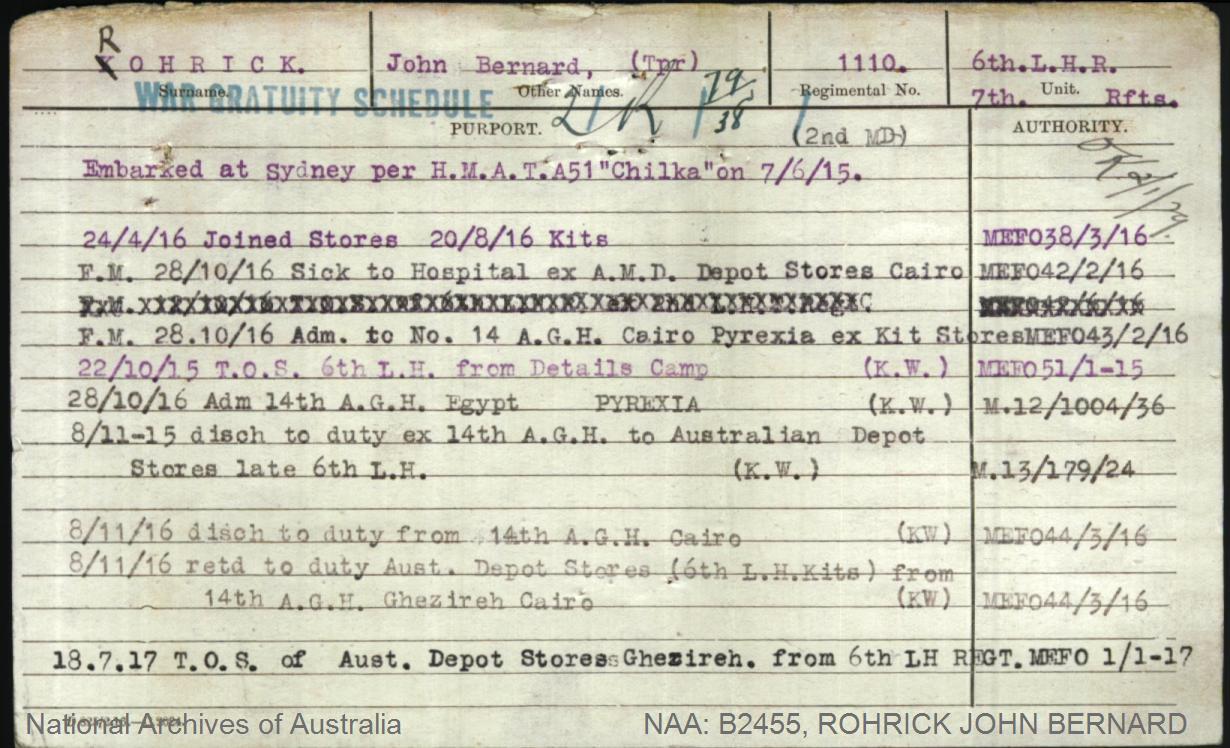 R
OHRICK. John Bernard, (Tpr) 1110. 6th.L.H.R.
Surname. Other Names. Regimental No. 7th. Unit. Rfts.
WAR GRATUITY SCHEDULE
19/38
PURPORT. (2nd MD) AUTHORITY.
Embarked at Sydney per H.M.A.T.A51"Chilka"on 7/6/15.
24/4/16 Joined Stores 20/8/16 Kits MEFO38/3/16
F.M. 28/10/16 Sick to Hospital ex A.M.D. Depot Stores Cairo MEFO42/2/16
F.M. 28.10/16 Adm. to No. 14 A.G.H. Cairo Pyrexia ex Kit StoresMEFO43/2/16
22/10/15 T.O.S. 6th L.H. from Details Camp (K.W.) MEFO51/1-15
28/10/16 Adm 14th A.G.H. Egypt PYREXIA (K.W.) M.12/1004/36
8/11-15 disch to duty ex 14th A.G.H. to Australian Depot
Stores late 6th L.H. (K.W.) M.13/179/24
8/11/16 disch to duty from 14th A.G.H. Cairo (KW) MEFO44/3/16
8/11/16 retd to duty Aust. Depot Stores (6th L.H.Kits) from
14th A.G.H. Ghezireh Cairo (KW) MEFO44/3/16
18.7.17 T.O.S. of Aust. Depot Stores Ghezireh. from 6th LH REGT. MEFO 1/1-17
National Archives of Australia NAA: B2455, ROHRICK JOHN BERNARD